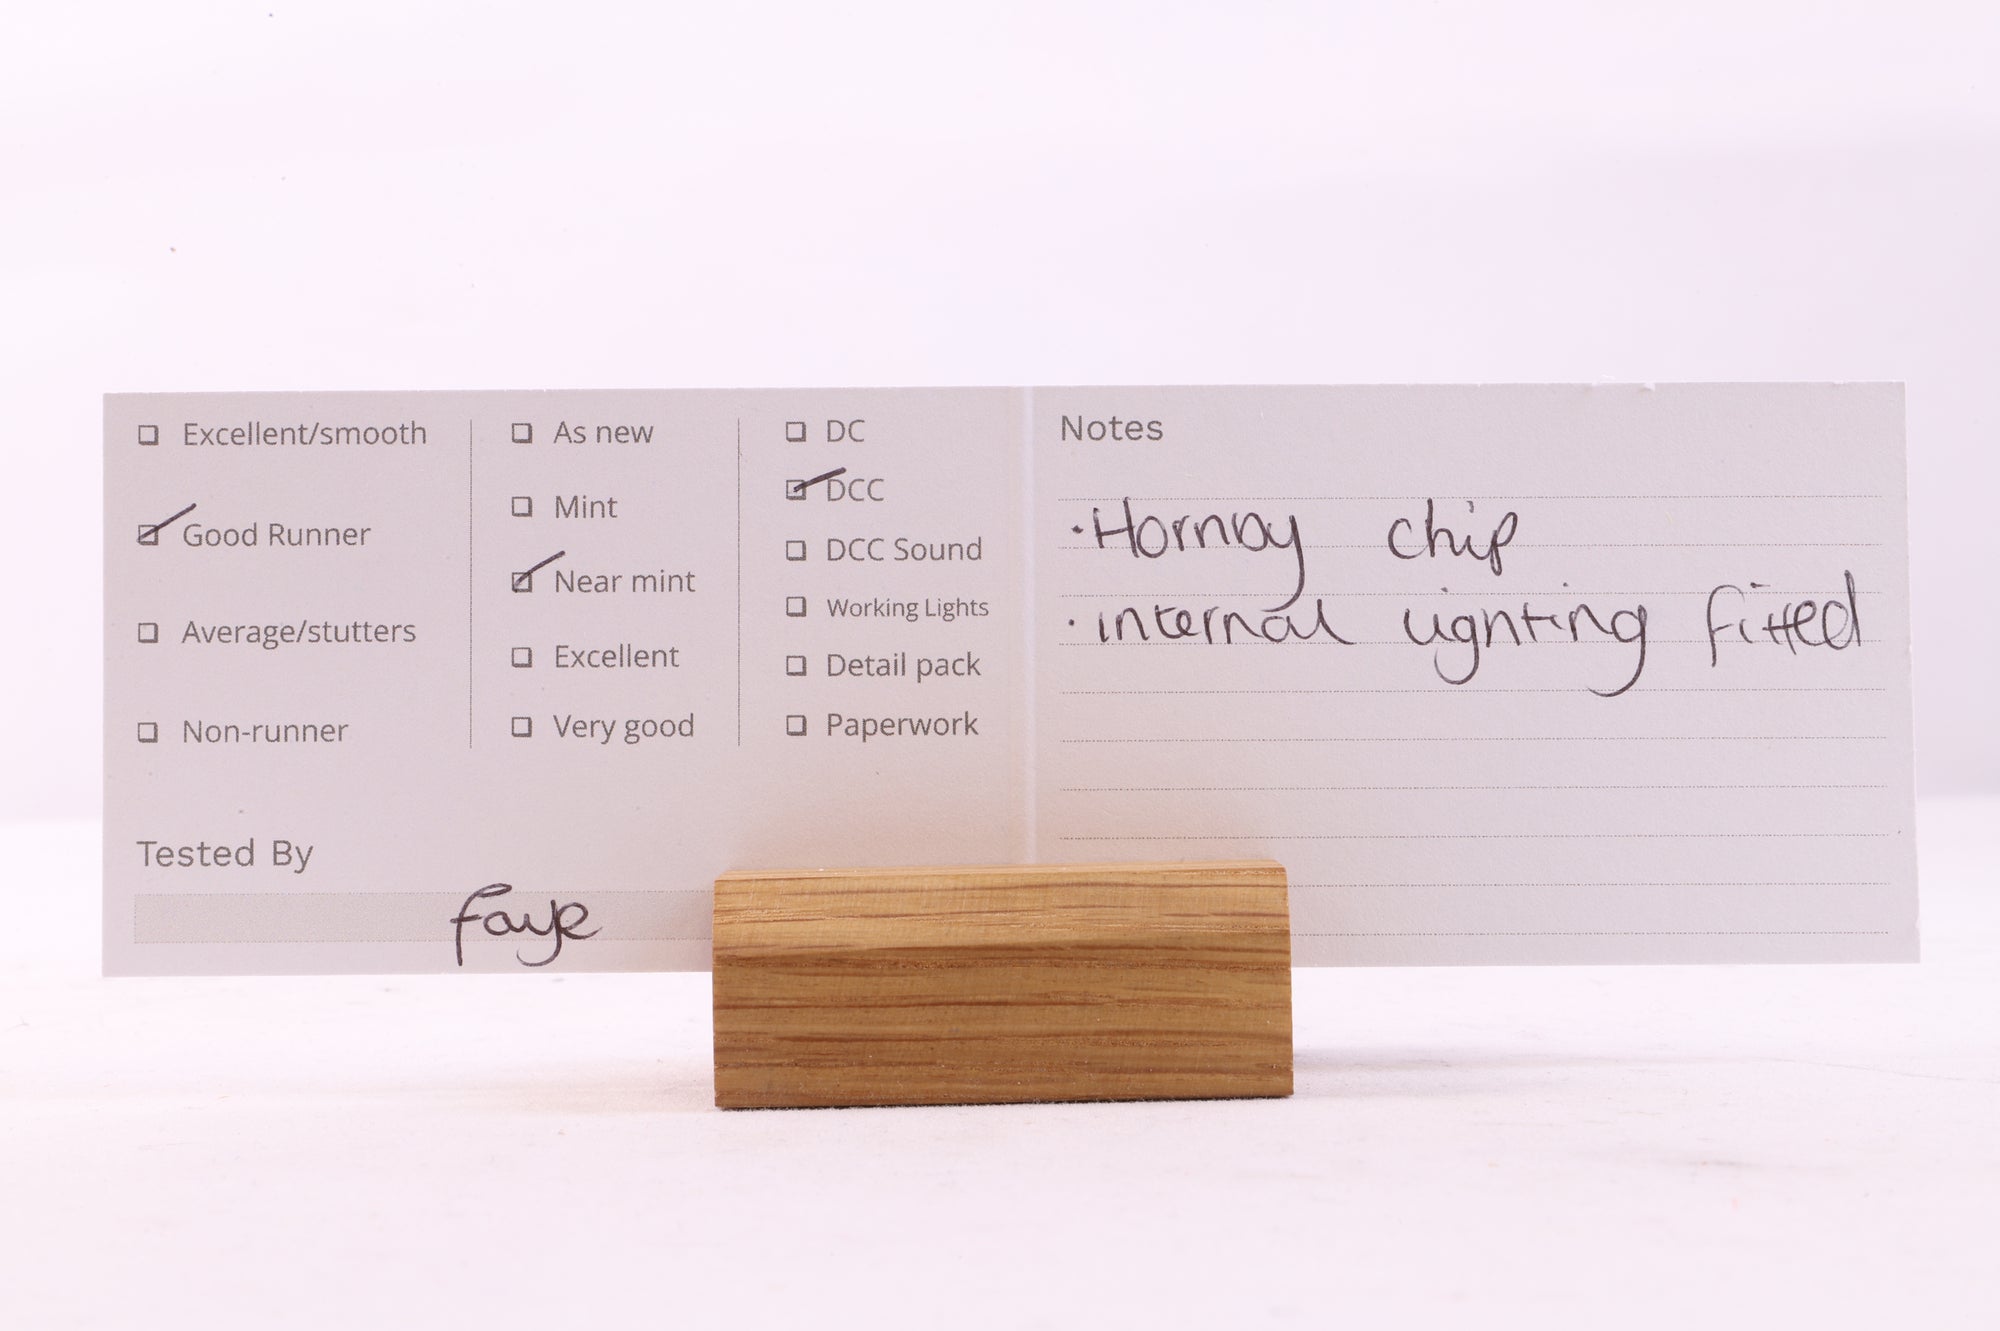 Excellent/smooth
Good Runner
Average/stutters
Non-runner
As new
Mint
Near mint
Excellent
Very good
DC
DCC
DCC Sound
Working Lights
Detail pack
Paperwork
Tested By
faye
Notes
· Hornby chip
· internal lighting fitted